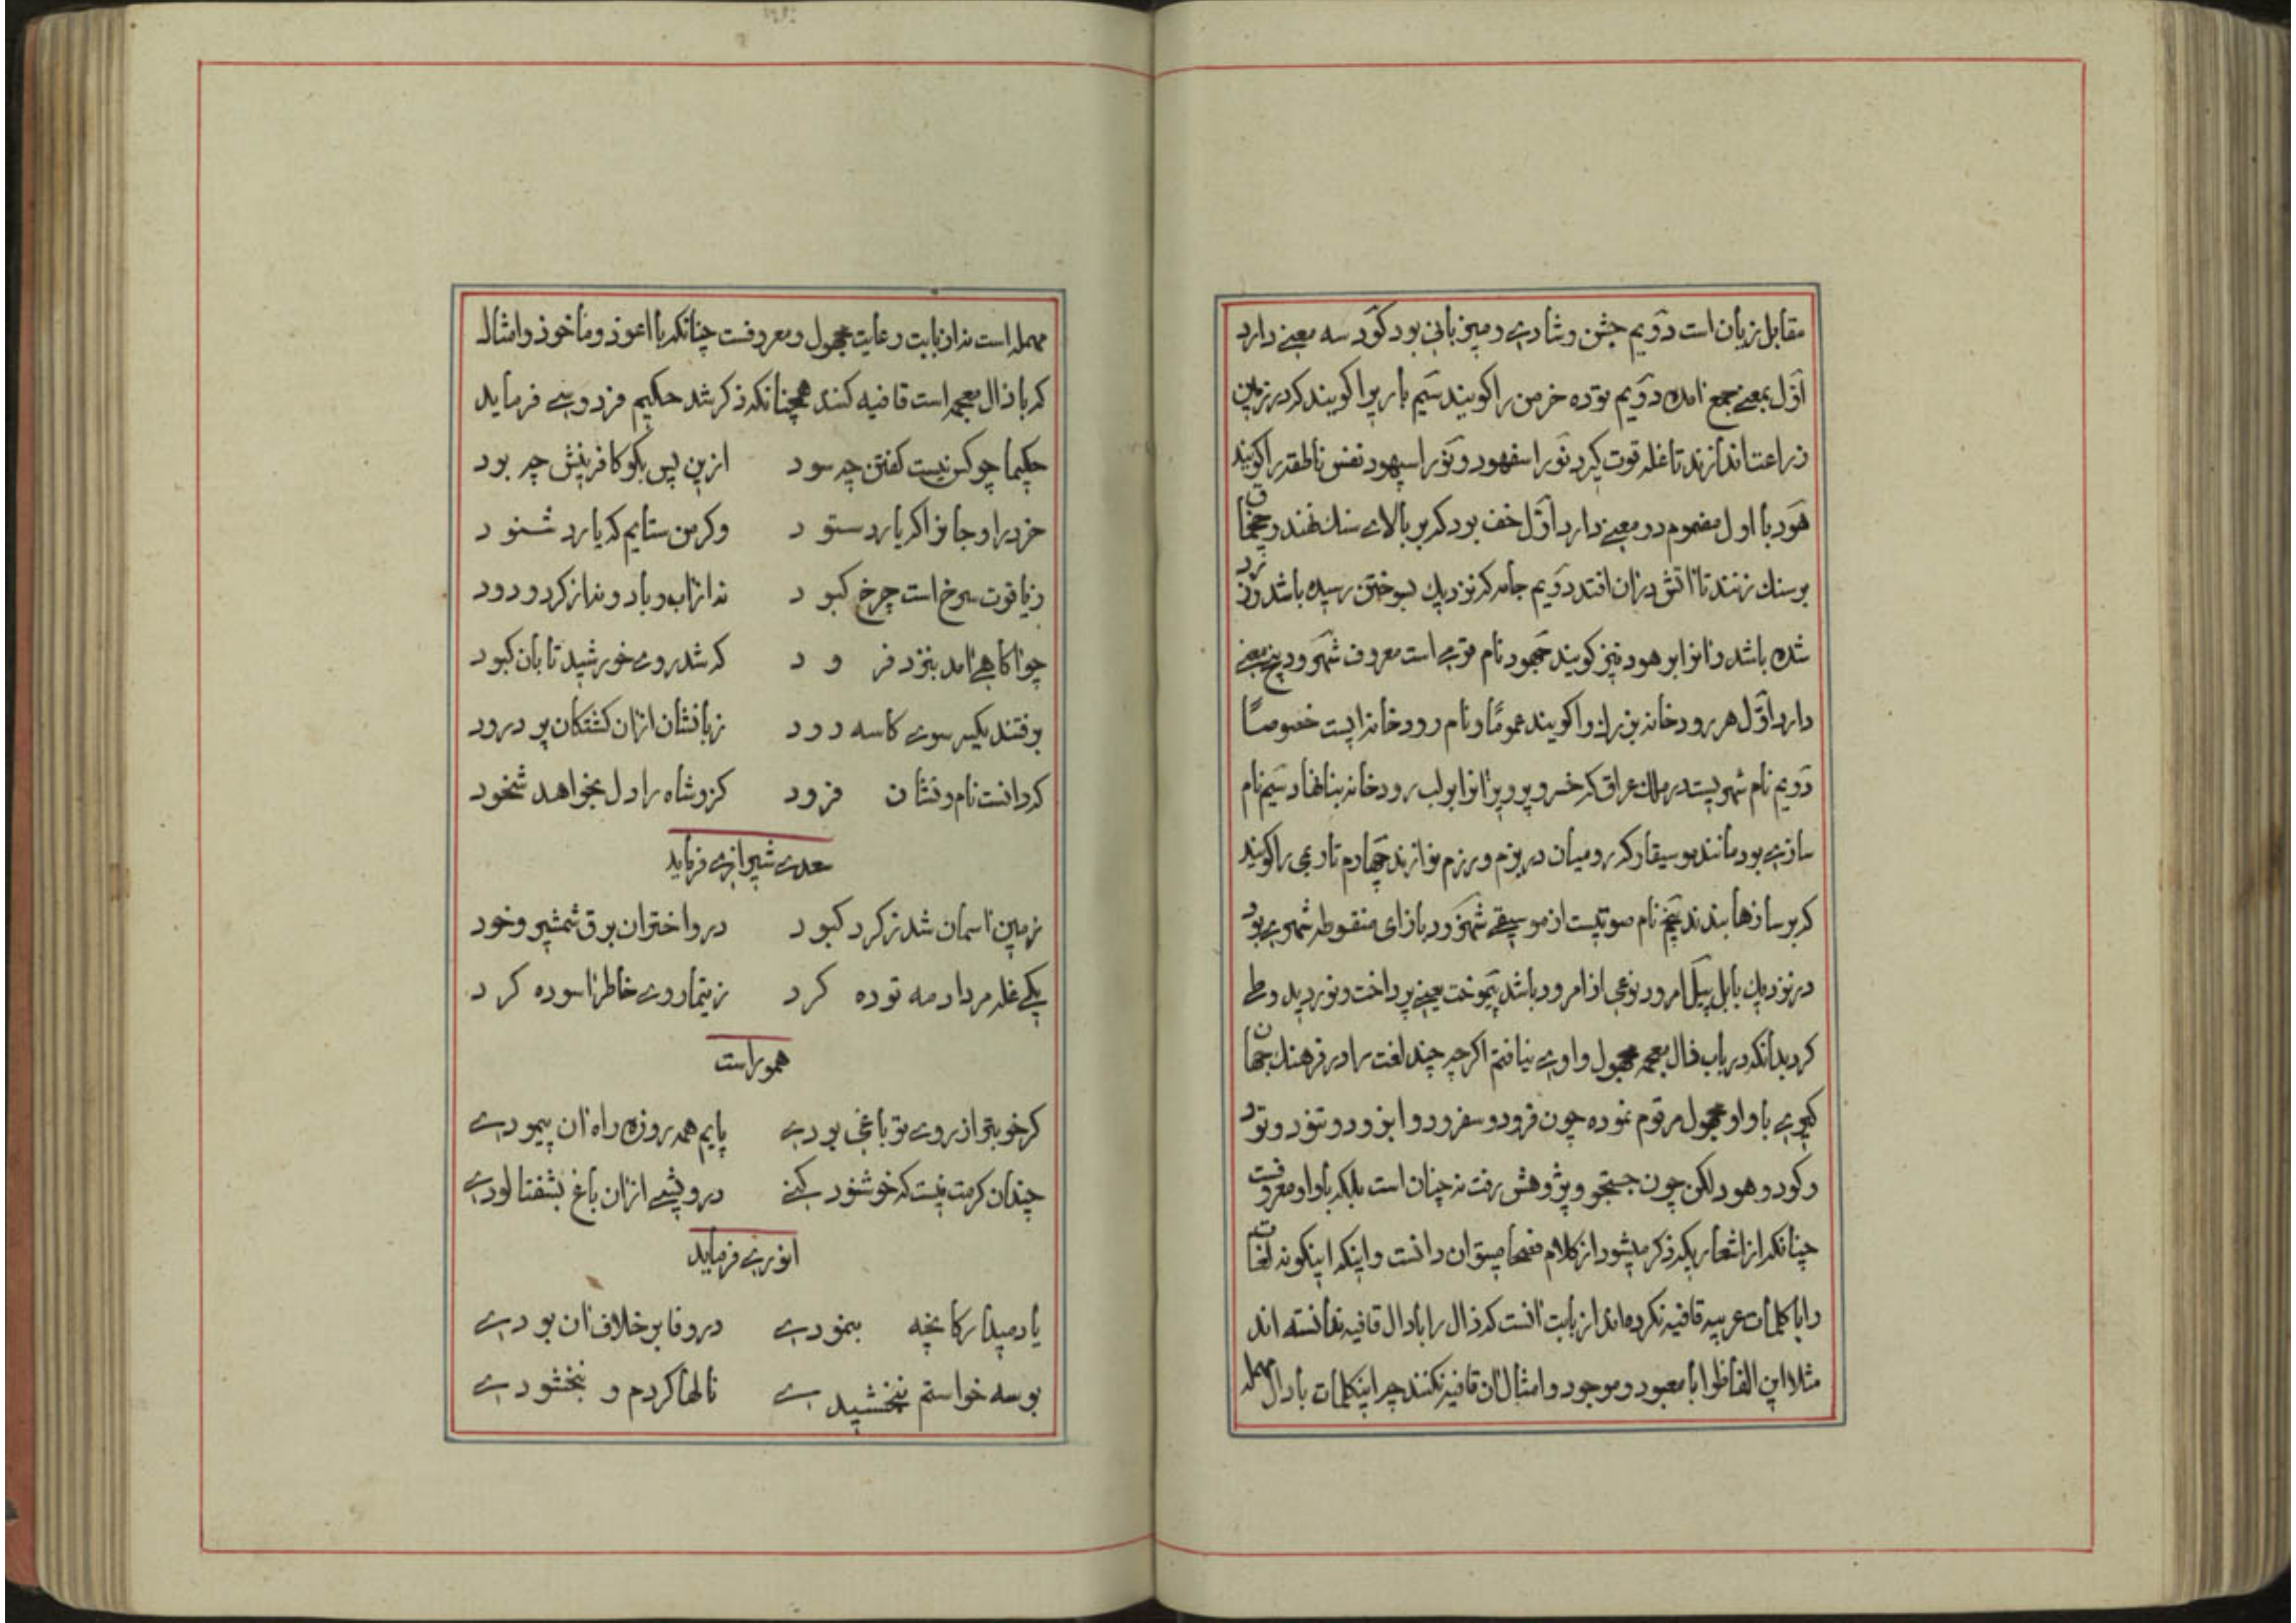 مقابل زیان است دویم جشن و شادی و میزبانی بود کود سه معنی دارد
اول بمعنی جمع امده دویم توده خرمن را کویند سیم بار یرا کویند که در زمین
زراعت اندازند تا غله قوت کیرد نور اسفهود و نور اسپهود نفس ناطقه را کویند
هود با اول مضموم دو معنی دارد اول خف بود که بر بالای سنك نهند و چخماق
بر سنك زنند تا اتش دران افتد دویم جامه که نزدیك بسوختن رسیده باشد و زرد
شده باشد و انرا برهود نیز کویند جهود نام قومی است معروف شهرود پنج معنی
دارد اول هر رودخانه بزرك را کویند عموما و نام رودخانه ایست خصوصا
دویم نام شهریست در ملك عراق که خسرو پرویز انرا بر لب رودخانه بنا نهاد سیم نام
سازی بود مانند موسیقار که رومیان در بزم و رزم نوازند چهارم تاری را کویند
که بر سازها بندند پنجم نام صوتیست از موسیقی شهزود با زای منقوطه شهری بود
در نزدیك بابل پیل امرود نوعی از امرود باشد پیموخت یعنی پرداخت و نوردید و طی
کرد بدانکه در باب ذال معجمه مجهول واوی نیافتم اکرچه چند لغت را در فرهنك جهان
کیری با واو مجهول مرقوم نموده چون فرود و سفرود و ابزود و تنود و تود
و کود و هود لکن چون جستجو و پژوهش رفت نه چنان است بلکه با واو معروفست
چنانکه از اشعاریکه ذکر میشود از کلام فصحا میتوان دانست و اینکه اینکونه لغات
را با کلمات عربیه قافیه نکرده‌اند از بابت انست که ذال را با دال قافیه ندانسته اند
مثلا این الفاظ را با معبود و موجود و امثال ان قافیه نکنند چرا اینکلمات با دال مهمله
مهمله است نه از بابت رعایت مجهول و معروفست چنانکه با اعوذ و مأخوذ و امثال
که با ذال معجمه است قافیه کنند همچنانکه ذکر شد حکیم فردوسی فرماید
حکیما چو کس نیست کفتن چه سود ازین پس بکو کافرینش چه بود
خرد را و جانرا که یارد ستود وکر من ستایم که یارد شنود
ز یاقوت سرخ است چرخ کبود نه از اب و باد و نه از کرد و دود
چو اکاهی امد بنزد فرود که شد روی خورشید تابان کبود
برفتند یکسر سوی کاسه رود زبانشان ازان کشتکان پر درود
که دانست نام و نشان فرود کزو شاه را دل بخواهد شخود
سعدی شیرازی فرماید
زمین اسمان شد ز کرد کبود درو اختران برق شمشیر و خود
یکی غله مرداد مه توده کرد ز تیمار دی خاطر اسوده کرد
هموراست
کر خوبتر از روی تو باغی بودی پایم همه روزه راه ان پیمودی
چندان کرمت نیست که خوشنود کنی درویشی ازان باغ بشفتالودی
انوری فرماید
یاد میدار کانچه بنمودی در وفا بر خلاف ان بودی
بوسه خواستم نبخشیدی نالها کردم و نبخشودی